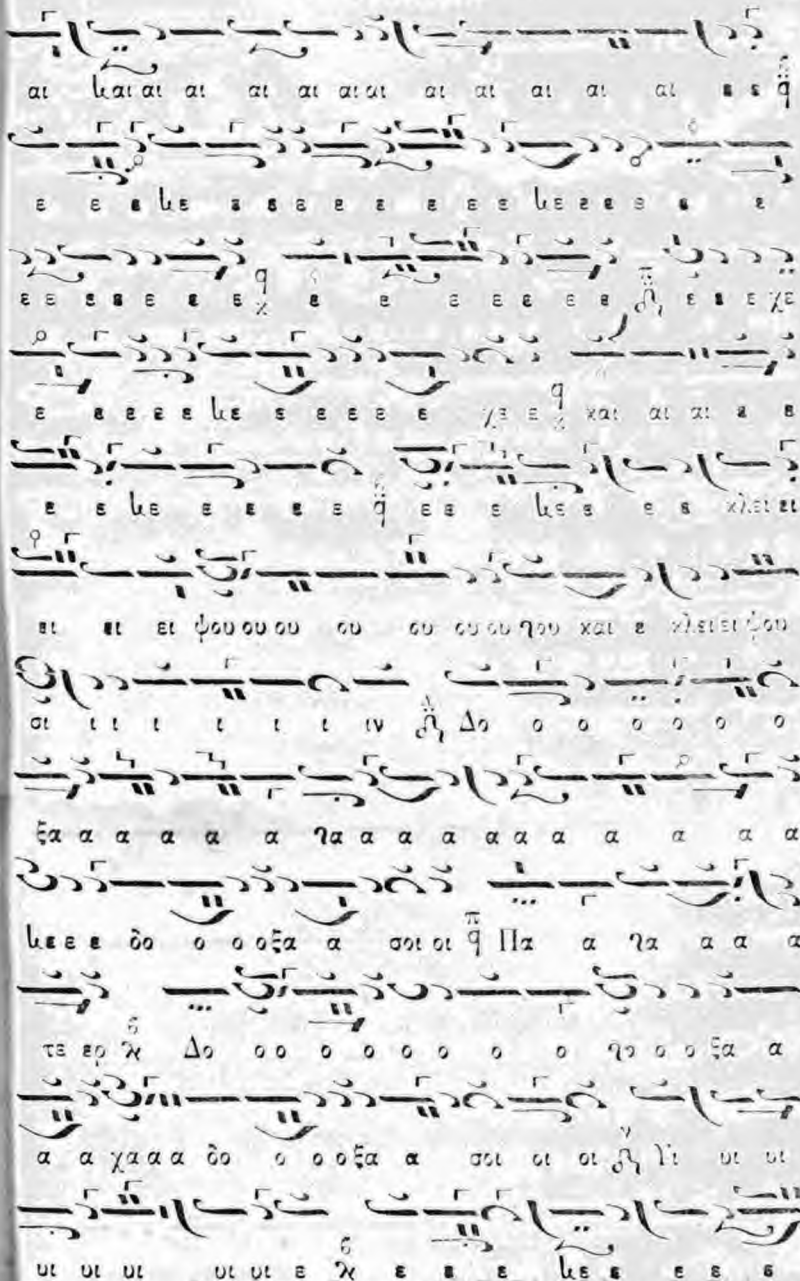 αι και αι αι αι αι αι αι αι αι αι αι αι ε ε
ε ε ε κε ε ε ε ε ε ε ε ε κε ε ε ε ε ε
ε ε ε ε ε ε ε ε ε ε ε ε ε ε ε ε ε χε
ε ε ε ε ε κε ε ε ε ε ε χε ε και αι αι ε ε
ε ε κε ε ε ε ε ε ε ε κε ε ε ε κλει ει
ει ει ει ψου ου ου ου ου ου ου ηου και ε κλει ει ψου
σι ι ι ι ι ι ι ιν Δο ο ο ο ο ο ο
ξα α α α α α ηα α α α α α α α α α
κε ε ε δο ο ο ο ξα α σοι οι Πα α ηα α α α
τε ερ Δο ο ο ο ο ο ο ο ο ηο ο ο ξα α
α α χα α α δο ο ο ο ξα α σοι οι οι Υι υι υι
υι υι υι υι υι ε ε ε ε κε ε ε ε ε